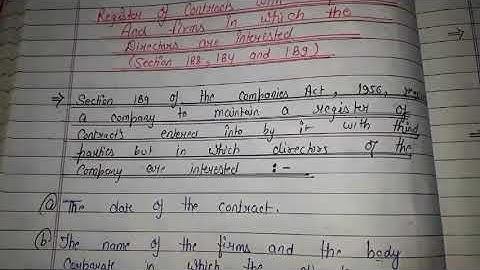 Register of Contracts with
And firms in which the
Directors are interested
(Section 188, 184 and 189)
⇒ Section 189 of the Companies Act, 1956,
a company to maintain a register of
Contracts entered into by it with third
parties but in which directors of the
Company are interested :-
(a) The date of the contract.
(b) The name of the firms and the body
Corporate in which the